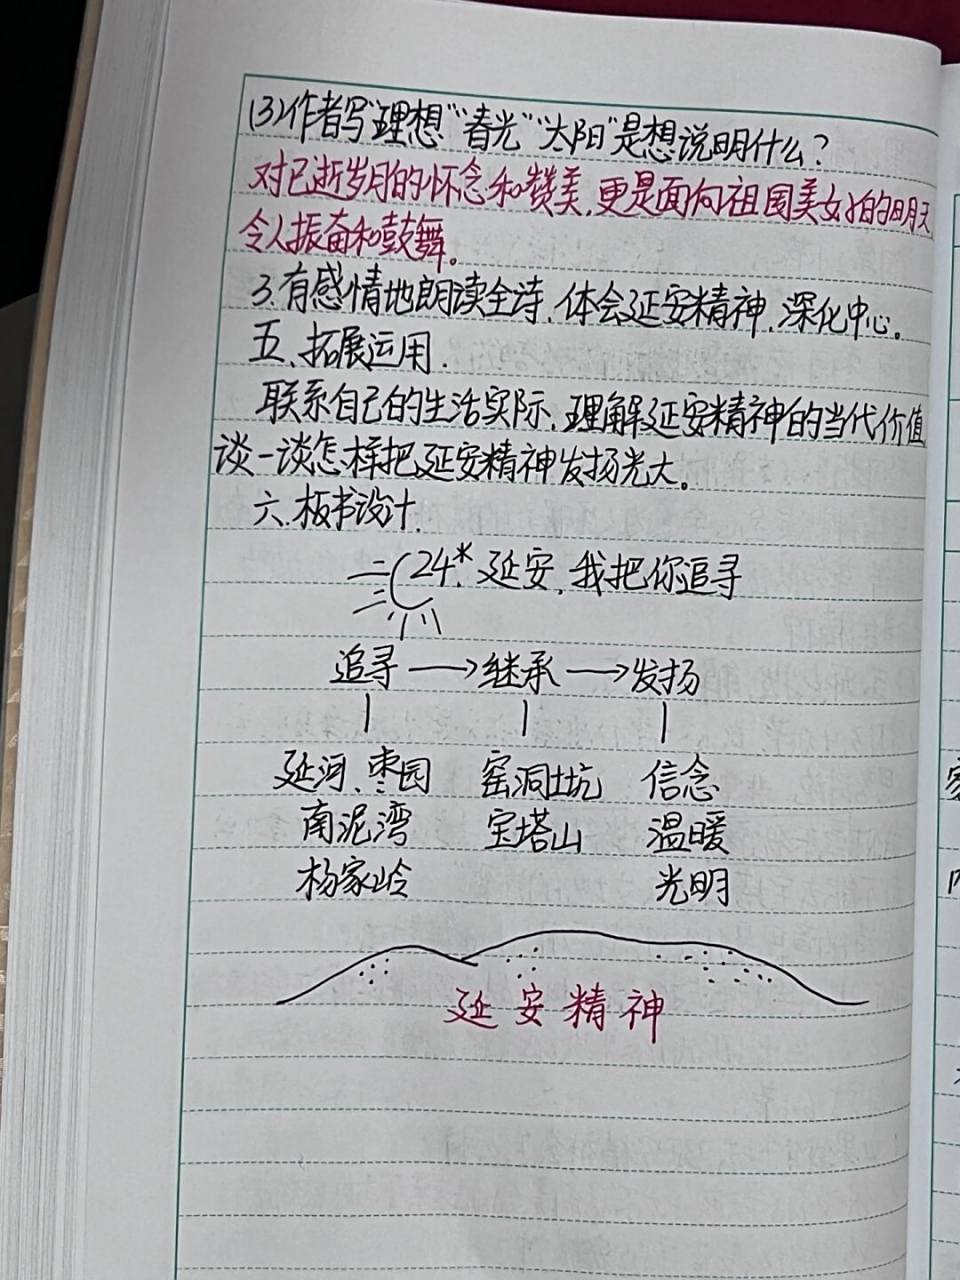 (3)作者写“理想”“春光”“太阳”是想说明什么?
对已逝岁月的怀念和赞美,更是面向祖国美好的明天
令人振奋和鼓舞。
3.有感情地朗读全诗,体会延安精神,深化中心。
五、拓展运用.
联系自己的生活实际,理解延安精神的当代价值
谈一谈怎样把延安精神发扬光大。
六、板书设计.
24.* 延安,我把你追寻
追寻→继承→发扬
延河、枣园 窑洞土坑 信念
南泥湾 宝塔山 温暖
杨家岭 光明
延安精神